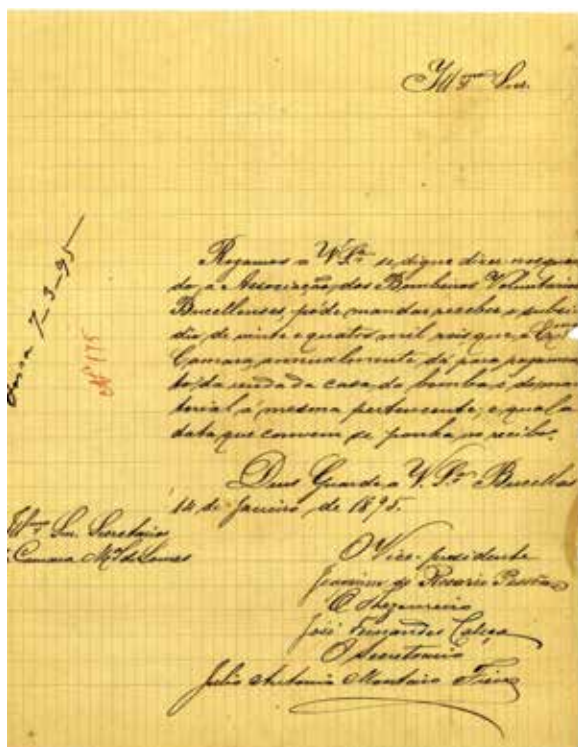 Illmo Snr.
Rogamos a V. Sa. se digne dizer-nos quan
do a Associação dos Bombeiros Voluntarios
Bucellenses, póde mandar receber o subsi
dio de vinte e quatro mil reis que a Exma
Camara, annualmente dá para pagamen
to, da renda da casa da bomba e de ma
terial á mesma pertencente, e qual a
data que convem se ponha no recibo.
Deus Guarde a V. Sa. Bucellas
14 de Janeiro de 1895.
Illmo Snr. Secretario
Camara Mal de Loures
O Vice-presidente
Joaquim do Rosario
O Thezoureiro
José Fernandes
O Secretario
Julio Antonio Monteiro
7-3-95
Nº 175